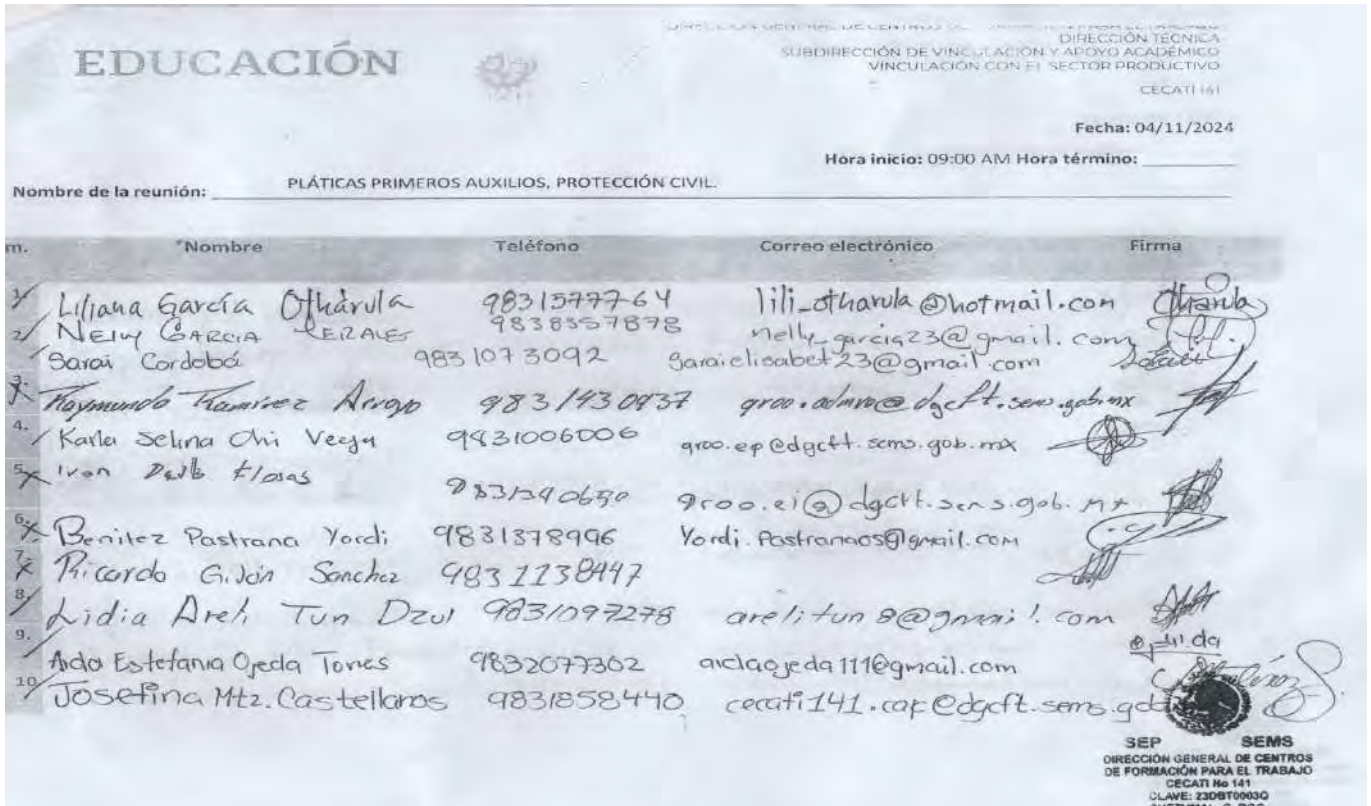 EDUCACIÓN
DIRECCIÓN GENERAL DE CENTROS DE
DIRECCIÓN TÉCNICA
SUBDIRECCIÓN DE VINCULACIÓN Y APOYO ACADÉMICO
VINCULACIÓN CON EL SECTOR PRODUCTIVO
CECATI 141
Fecha: 04/11/2024
Hora inicio: 09:00 AM Hora término:
Nombre de la reunión: PLÁTICAS PRIMEROS AUXILIOS, PROTECCIÓN CIVIL.
m. Nombre Teléfono Correo electrónico Firma
1 Liliana García Othárula 9831577764 lili_otharula@hotmail.com Otharula
2 Nelly GARCIA PERALES 9838357878 nelly_garcia23@gmail.com
Sarai Cordobá 9831073092 sarai.elisabet23@gmail.com
3. Raymundo Ramírez Arroyo 9831430937 qroo.admvo@dgcft.sems.gob.mx
4. Karla Selina Chi Vega 9831006006 qroo.ep@dgcft.sems.gob.mx
5. Ivan qroo.ei@dgcft.sems.gob.mx
6. Benitez Pastrana Yordi 9831378996 Yordi.Pastrana05@gmail.com
7. Ricardo Sanchez 9831138447
8. Lidia Areli Tun Dzul 9831097278 arelitun8@gmail.com
9. Aida Estefania Ojeda Torres 9832077302 aidaojeda111@gmail.com
10. Josefina Mtz. Castellanos 9831858440 cecati141.cap@dgcft.sems.gob
SEP SEMS
DIRECCIÓN GENERAL DE CENTROS
DE FORMACIÓN PARA EL TRABAJO
CECATI No 141
CLAVE: 23DBT0003Q